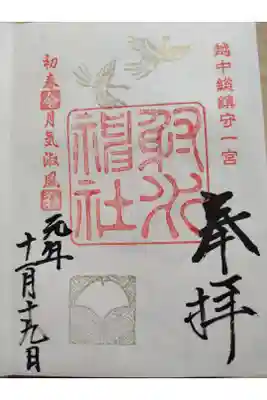 越中総鎮守一宮
奉拝
射水神社
初春令月気淑風和
元年
十一月十九日